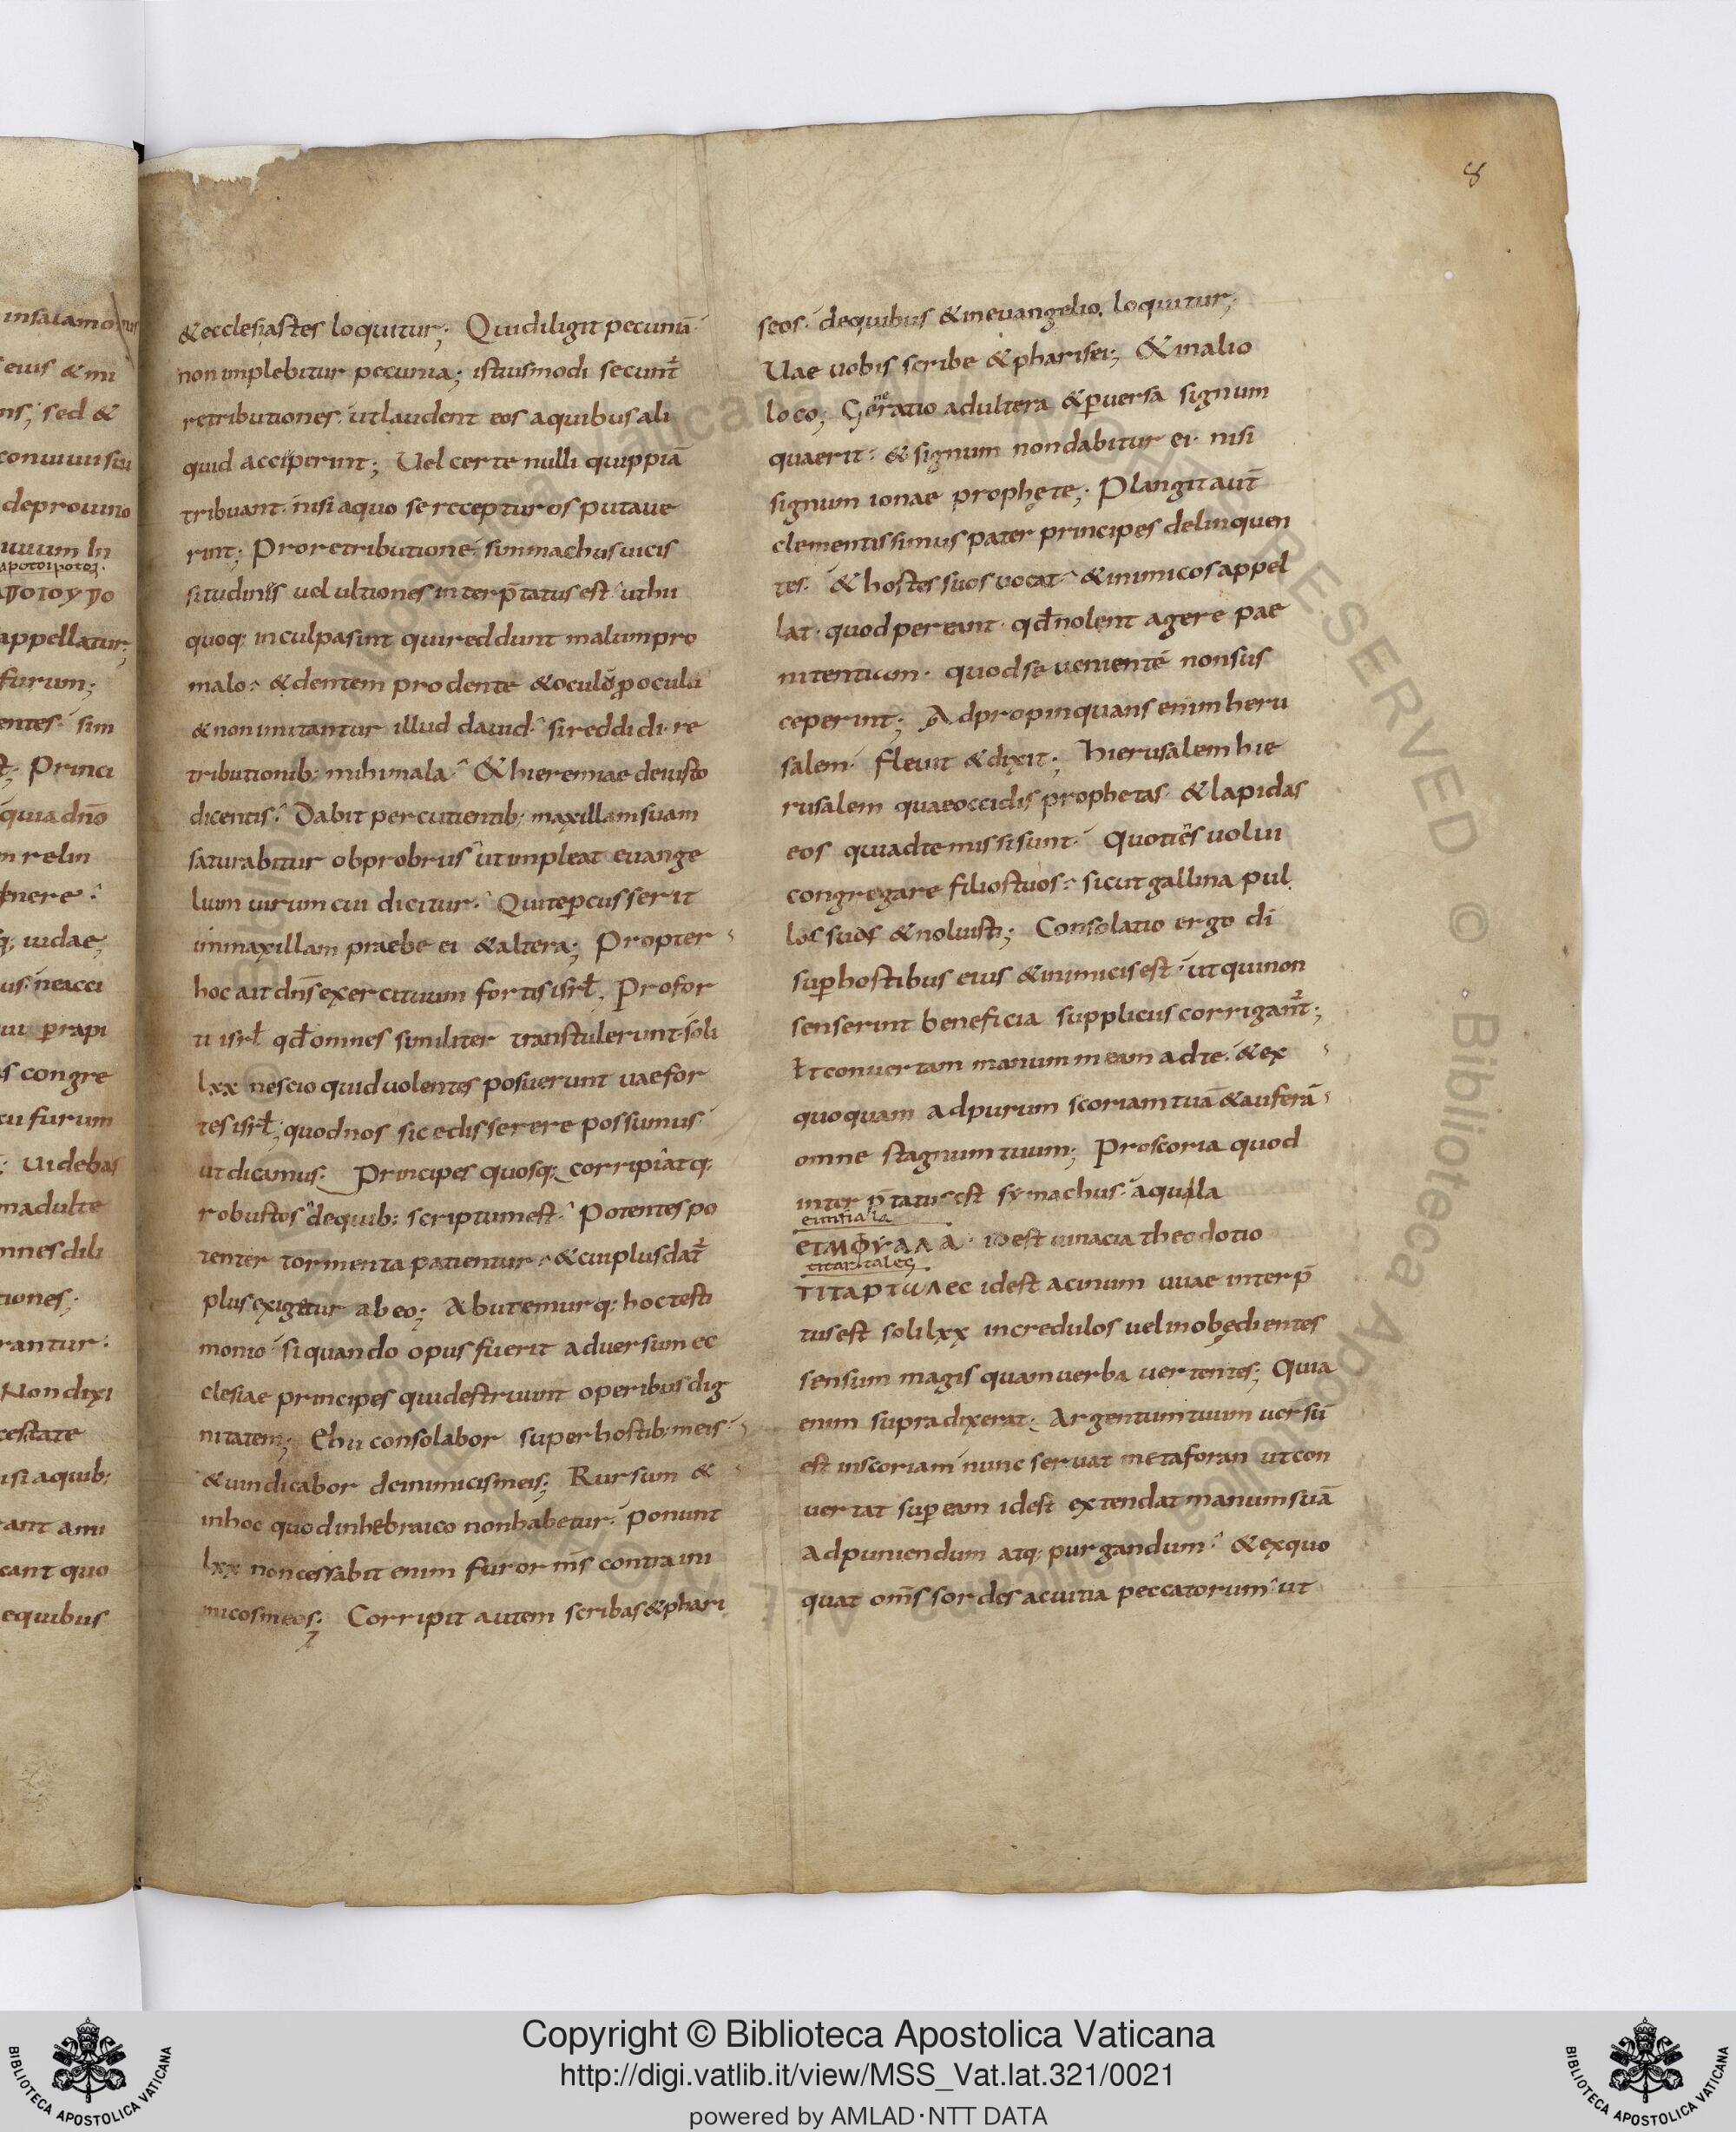 8
insalamo
eius & mi
ns; sed &
conuiuii sui
de prouino
uiuum In
ΠΟΤΟΥ ΠΟ
appellatur;
furum;
entes· sim
t; Princi
quia dn̄o
relin
q; uidae;
us· neacci
ui p̄rapi
s congre
cu furum
; Uidebas
madulte
mnes dili
tiones;
rantur·
Non dixi
testate
isi aquib;
rant ami
cant quo
equibus
& ecclesiastes loquitur; Qui diligit pecuniā
non implebitur pecunia; istiusmodi secunt̄
retributiones· ut laudent eos a quibus ali
quid acciperint; Uel certe nulli quippiā
tribuant· nisi a quo se recepturos putaue
rint; Pro retributione· simmachus uicis
situdines uel ultiones interp̄tatus est· ut hii
quoq; in culpa sint qui reddunt malum pro
malo· & dentem pro dente & oculū p̄ oculu
& non imitantur illud dauid· si reddidi· re
tributionib; mihi mala· & hieremiae de iusto
dicentis· Dabit percutientib; maxillam suam
saturabitur obprobriis ut impleat euange
lium uirum cui dicitur· Qui te p̄cusserit
in maxillam praebe ei & altera; Propter
hoc ait dn̄s exercituum fortis isrł. Pro for
ti isrł qđ omnes similiter transtulerunt· soli
lxx nescio quid uolentes posuerunt uae for
tes isrł; quod nos sic edisserere possumus
ut dicamus· Principes quosq; corripiat q;
robustos de quib; scriptum est· Potentes po
tenter tormenta patientur· & cui plus dat̄
plus exigetur ab eo; Abutemur q; hoc testi
monio si quando opus fuerit aduersum ec
clesiae principes qui destruunt operibus dig
nitatem; Ehu consolabor super hostib; meis·
& uindicabor de inimicis meis; Rursum &
in hoc quod in hebraico non habetur· ponunt
lxx non cessabit enim furor m̄s contra ini
micos meos; Corripit autem scribas & phari
seos· de quibus & in euangelio loquitur;
Uae uobis scribe & pharisei; & in alio
loco; Generatio adultera & p̄uersa signum
quaerit· & signum non dabitur ei· nisi
signum ionae prophęte; Plangit aut̄
clementissimus pater principes delinquen
tes· & hostes suos uocat· & inimicos appel
lat· quod pereant· qđ nolent agere pae
nitentiam· quod se ueniente non sus
ceperint; Adpropinquans enim hieru
salem· fleuit & dixit; hierusalem hie
rusalem quae occidis prophetas & lapidas
eos qui ad te missi sunt· Quotiēs uolui
congregare filios tuos· sicut gallina pul
los suos & noluisti; Consolatio ergo dī
sup̄ hostibus eius & inimicis est· ut qui non
senserint beneficia suppliciis corrigant̄;
Et conuertam manum meam ad te· & ex
quoquam ad purum scoriam tuā & auferā
omne stagnum tuum; Pro scoria quod
interp̄tatus est symachus· aquila
ΕΓΜΦΥΛΛΑ· id est uinacia theodotio
ΤΙΓΑΡΤΩΛΕC id est acinum uuae interp̄
tus est soli lxx incredulos uel inobędientes
sensum magis quam uerba uertentes; Quia
enim supra dixerat· Argentum tuum uersū
est in scoriam nunc seruat metaforan ut con
uertat sup̄ eam id est extendat manum suā
ad puniendum atq; purgandum· & ex quo
quat om̄s sordes ac uitia peccatorum ut
Copyright © Biblioteca Apostolica Vaticana
http://digi.vatlib.it/view/MSS_Vat.lat.321/0021
powered by AMLAD·NTT DATA
BIBLIOTECA APOSTOLICA VATICANA
BIBLIOTECA APOSTOLICA VATICANA